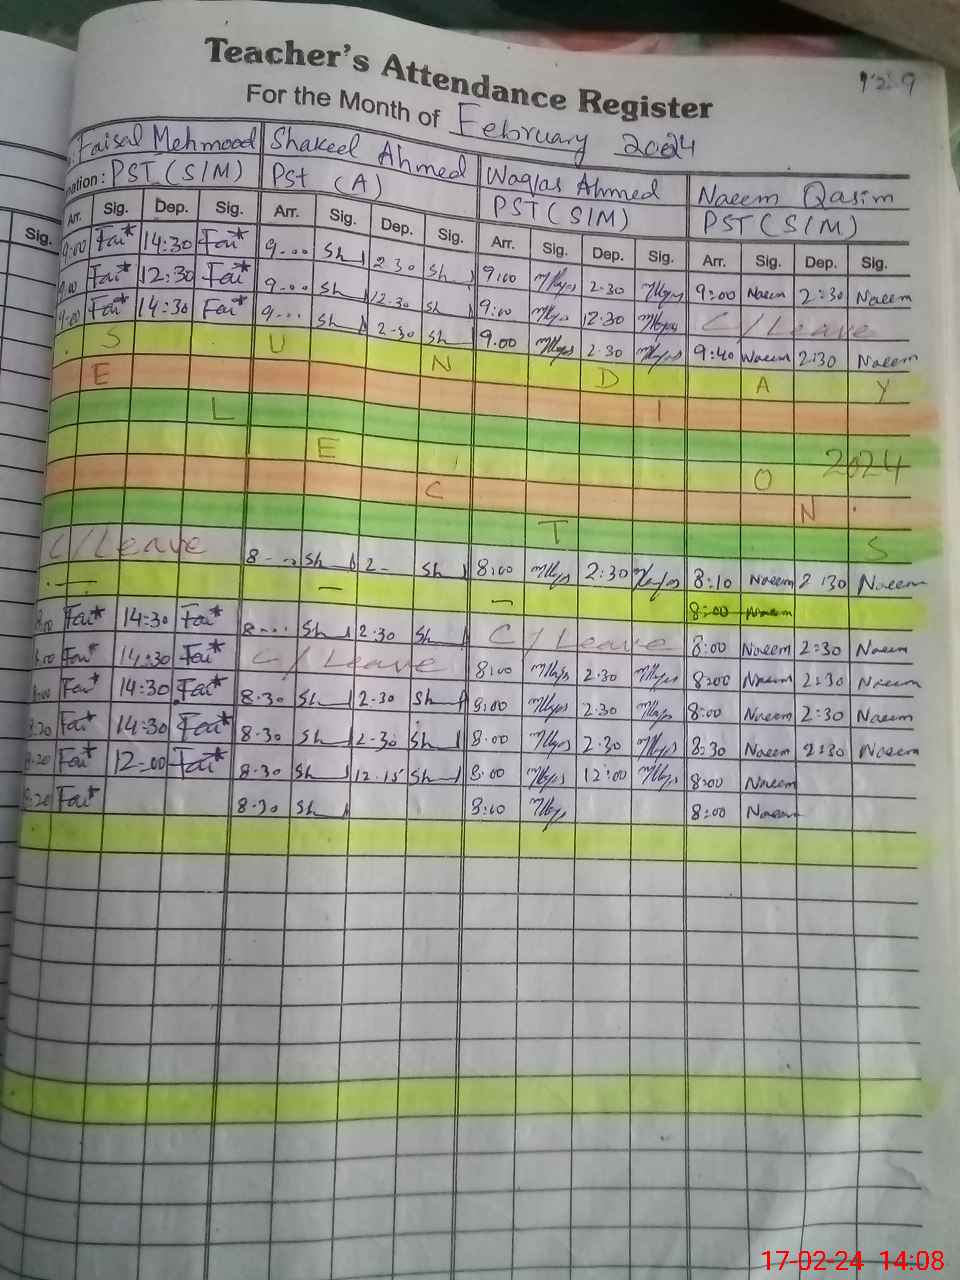 12:9
Teacher's Attendance Register
For the Month of February 2024
Faisal Mehmood Shakeel Ahmed Waqas Ahmed Naeem Qasim
nation: PST (S/M) Pst (A) PST (S/M) PST (S/M)
Sig. Arr. Sig. Dep. Sig. Arr. Sig. Dep. Sig. Arr. Sig. Dep. Sig. Arr. Sig. Dep. Sig.
9:00 Fai* 14:30 Fai* 9... Sh 2 30 Sh 9:00 2.30 9:00 Naeem 2:30 Naeem
9:00 Fai* 12:30 Fai* 9... Sh 12.30 Sh 9:00 12:30 C/Leave
9:00 Fai* 14:30 Fai* 9... Sh 2-30 Sh 9.00 2.30 9:40 Naeem 2:30 Naeem
S U N D A Y
E I
L
E O 2024
C N
T S
C/Leave 8... Sh 2- Sh 8:00 2:30 8:10 Naeem 2:30 Naeem
- - - 8:00 Naeem
8:00 Fai* 14:30 Fai* 8... Sh 2.30 Sh C/Leave 8:00 Naeem 2:30 Naeem
8:00 Fai* 14:30 Fai* C/Leave 8:00 2.30 8:00 Naeem 2:30 Naeem
8:00 Fai* 14:30 Fai* 8.30 Sh 2.30 Sh 8:00 2:30 8:00 Naeem 2:30 Naeem
8:20 Fai* 14:30 Fai* 8.30 Sh 2-30 Sh 8:00 2:30 8:30 Naeem 2:30 Naeem
8:20 Fai* 12-00 Fai* 8.30 Sh 12.15 Sh 8:00 12:00 8:00 Naeem
8:20 Fai* 8.30 Sh 8:00 8:00 Naeem
17-02-24 14:08